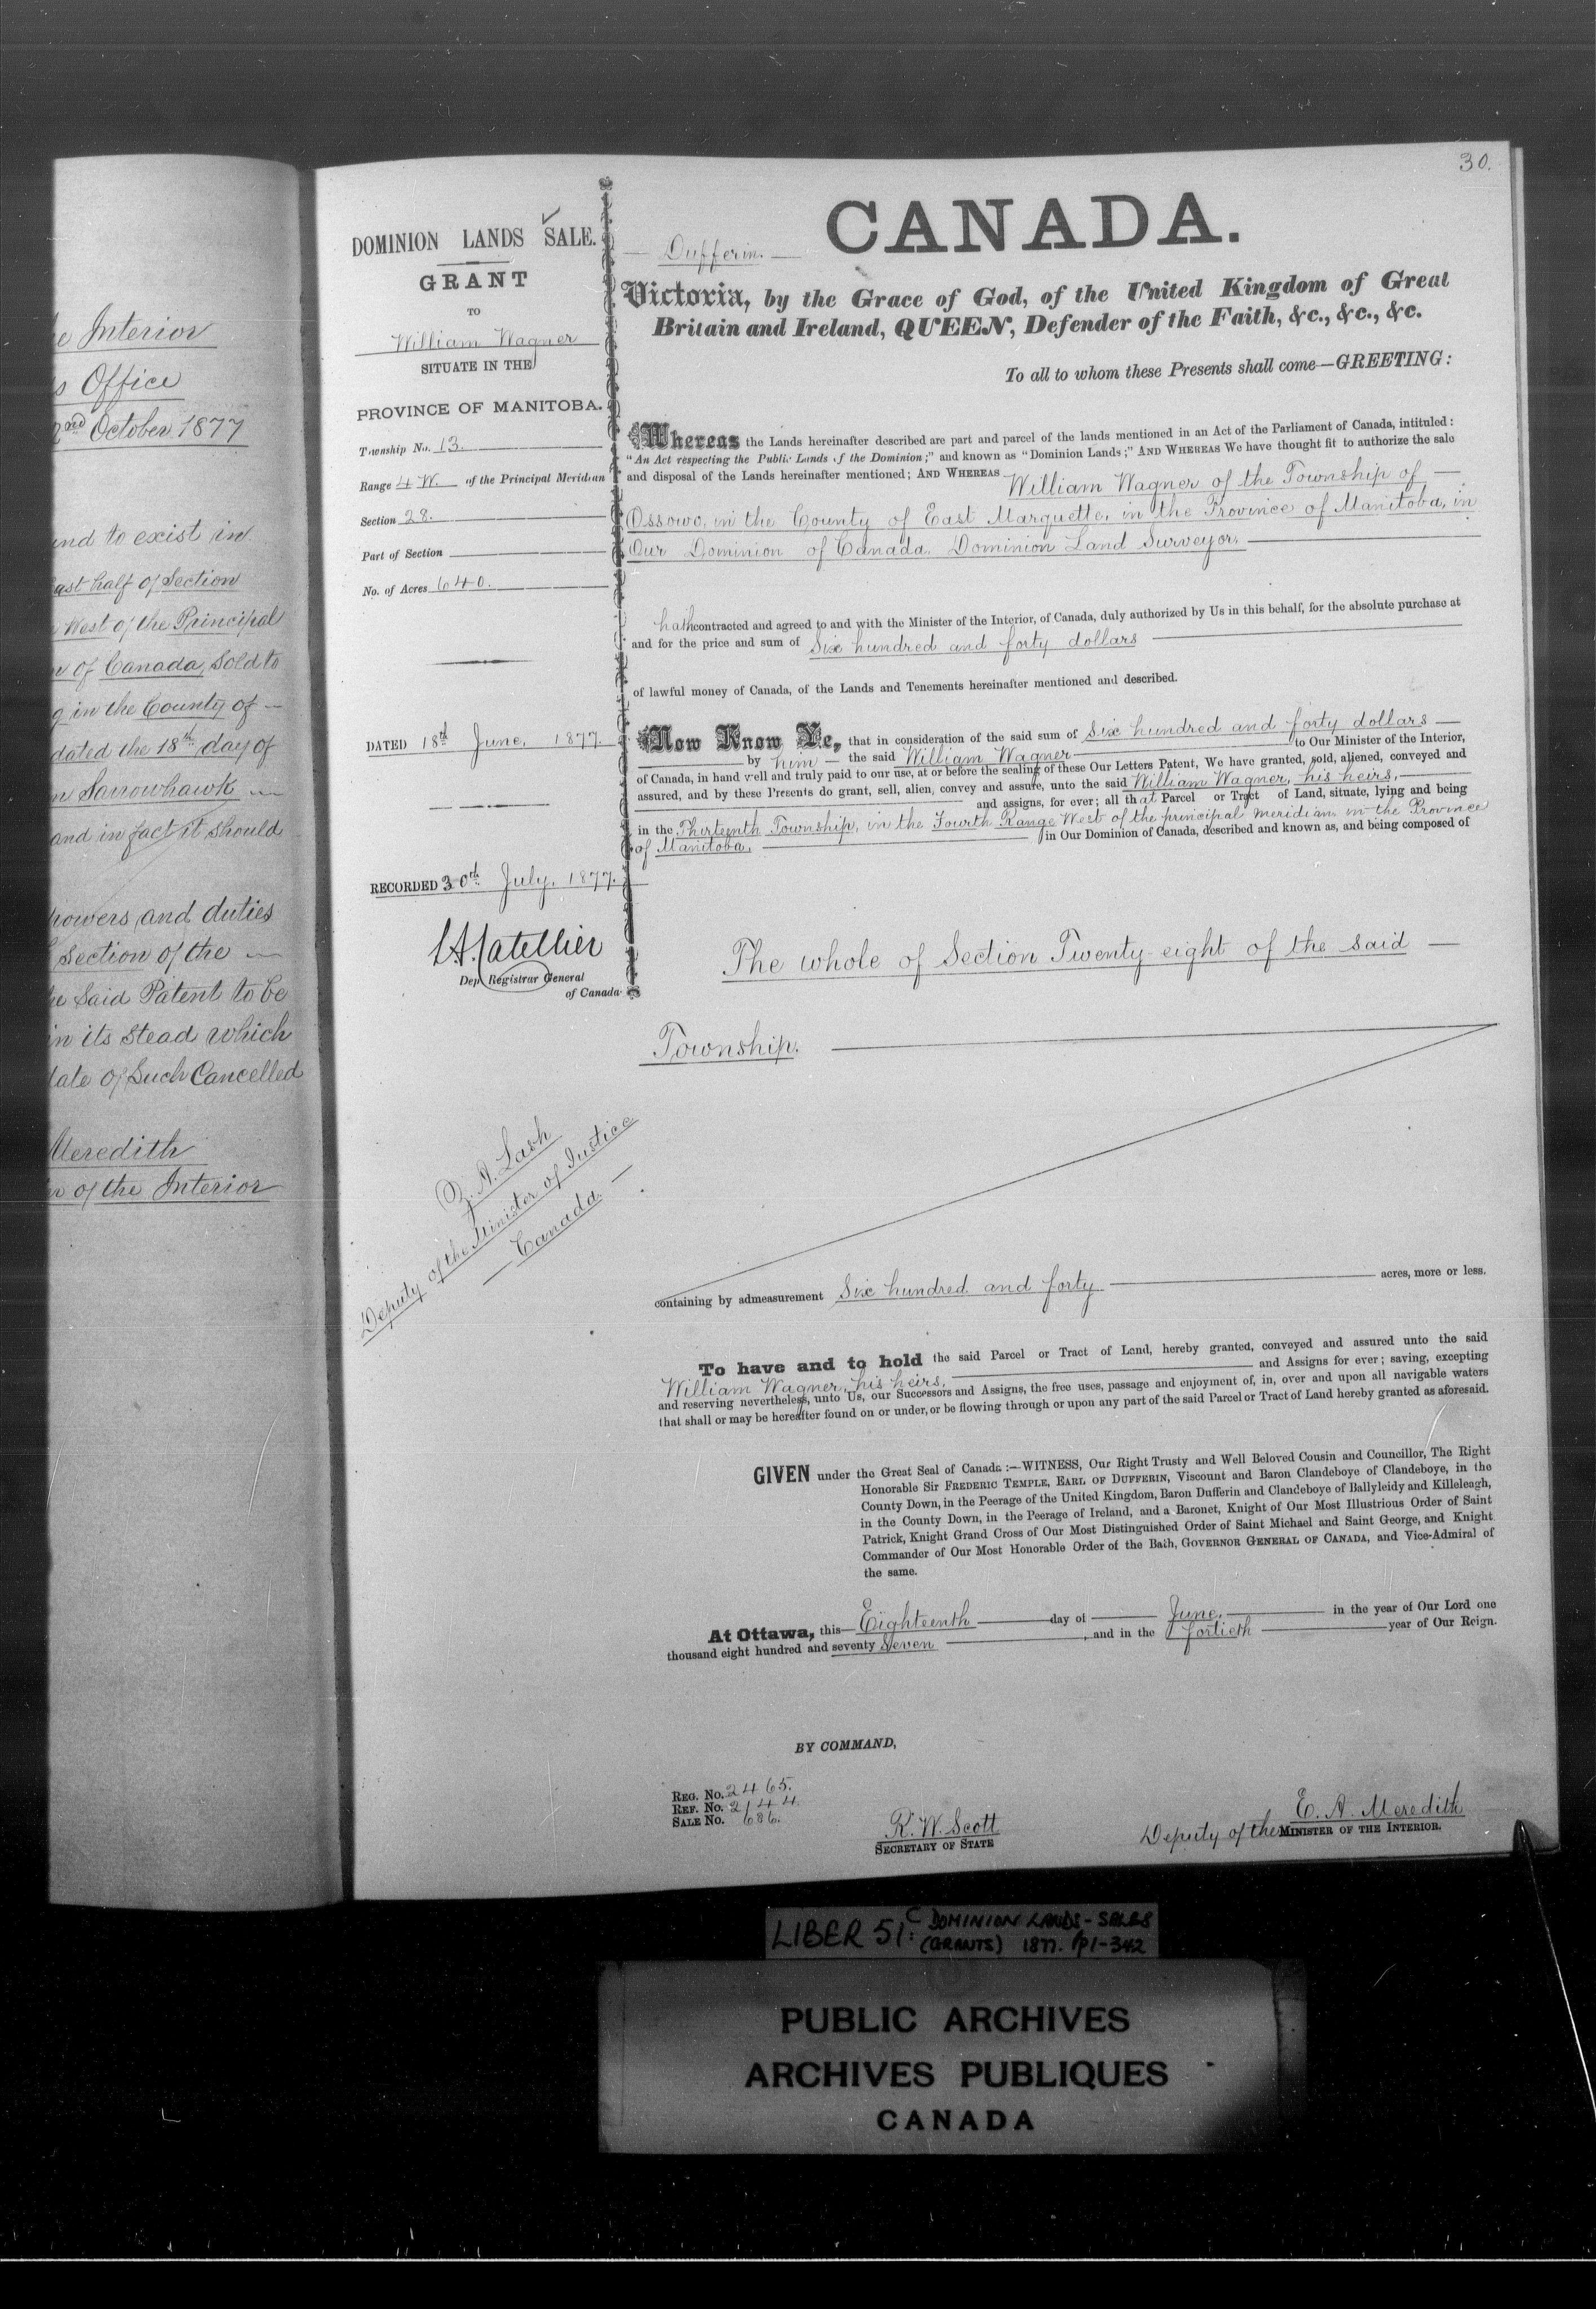 e Interior
s Office
2nd October 1877
und to exist in
East half of Section
West of the Principal
n of Canada, Sold to
g in the County of —
dated the 18th day of
m Sarrowhawk —
and in fact it should
powers and duties
Section of the —
he Said Patent to be
in its Stead which
date of Such Cancelled
Meredith
r of the Interior
30.
DOMINION LANDS SALE.
GRANT
TO
William Wagner
SITUATE IN THE
PROVINCE OF MANITOBA.
Township No. 13.
Range 4 W. of the Principal Meridian
Section 28.
Part of Section
No. of Acres 640.
DATED 18th June, 1877.
RECORDED 30th July, 1877.
L.A. Catellier
Dep Registrar General
of Canada
Z. A. Lash
Deputy of the Minister of Justice
— Canada. —
CANADA.
— Dufferin. —
Victoria, by the Grace of God, of the United Kingdom of Great
Britain and Ireland, QUEEN, Defender of the Faith, &c., &c., &c.
To all to whom these Presents shall come—GREETING:
Whereas the Lands hereinafter described are part and parcel of the lands mentioned in an Act of the Parliament of Canada, intituled:
"An Act respecting the Public Lands of the Dominion;" and known as "Dominion Lands;" AND WHEREAS We have thought fit to authorize the sale
and disposal of the Lands hereinafter mentioned; AND WHEREAS William Wagner of the Township of —
Ossowo, in the County of East Marquette, in the Province of Manitoba, in
Our Dominion of Canada, Dominion Land Surveyor.
hath contracted and agreed to and with the Minister of the Interior, of Canada, duly authorized by Us in this behalf, for the absolute purchase at
and for the price and sum of Six hundred and forty dollars
of lawful money of Canada, of the Lands and Tenements hereinafter mentioned and described.
Now Know Ye, that in consideration of the said sum of Six hundred and forty dollars —
by him — the said William Wagner to Our Minister of the Interior,
of Canada, in hand well and truly paid to our use, at or before the sealing of these Our Letters Patent, We have granted, sold, aliened, conveyed and
assured, and by these Presents do grant, sell, alien, convey and assure, unto the said William Wagner, his heirs,
and assigns, for ever; all that Parcel or Tract of Land, situate, lying and being
in the Thirteenth Township, in the Fourth Range West of the principal meridian in the Province
of Manitoba, in Our Dominion of Canada, described and known as, and being composed of
The whole of Section Twenty-eight of the said —
Township.
containing by admeasurement Six hundred and forty acres, more or less.
To have and to hold the said Parcel or Tract of Land, hereby granted, conveyed and assured unto the said
William Wagner, his heirs, and Assigns for ever; saving, excepting
and reserving nevertheless, unto Us, our Successors and Assigns, the free uses, passage and enjoyment of, in, over and upon all navigable waters
that shall or may be hereafter found on or under, or be flowing through or upon any part of the said Parcel or Tract of Land hereby granted as aforesaid.
GIVEN under the Great Seal of Canada:—WITNESS, Our Right Trusty and Well Beloved Cousin and Councillor, The Right
Honorable Sir FREDERIC TEMPLE, EARL OF DUFFERIN, Viscount and Baron Clandeboye of Clandeboye, in the
County Down, in the Peerage of the United Kingdom, Baron Dufferin and Clandeboye of Ballyleidy and Killeleagh,
in the County Down, in the Peerage of Ireland, and a Baronet, Knight of Our Most Illustrious Order of Saint
Patrick, Knight Grand Cross of Our Most Distinguished Order of Saint Michael and Saint George, and Knight
Commander of Our Most Honorable Order of the Bath, GOVERNOR GENERAL OF CANADA, and Vice-Admiral of
the same.
At Ottawa, this Eighteenth day of June, in the year of Our Lord one
thousand eight hundred and seventy Seven, and in the fortieth year of Our Reign.
BY COMMAND,
REG. No. 2465.
REF. No. 2144.
SALE No. 686.
R. W. Scott
SECRETARY OF STATE
E. A. Meredith
Deputy of the MINISTER OF THE INTERIOR.
LIBER 51: C DOMINION LANDS - SALES
(GRANTS) 1877. pp1-342
PUBLIC ARCHIVES
ARCHIVES PUBLIQUES
CANADA